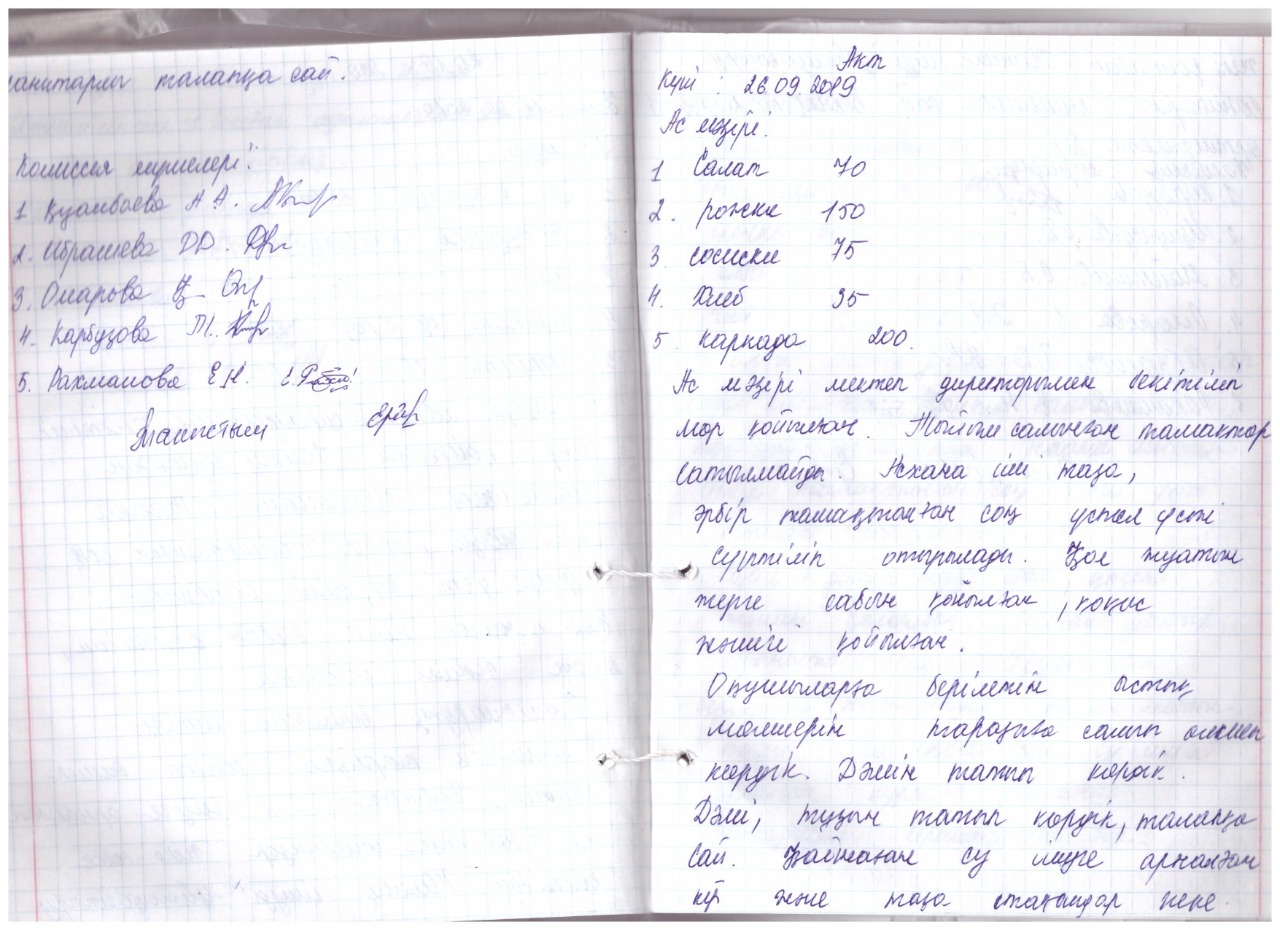 санитарлы талапқа сай.
Комиссия мүшелері:
1 Қуанбаева А А.
2. Ибрашева Д.Д.
3. Омарова Қ.
4. Карбузова Т.
5. Рахманова Е.Н.
Таныстым
Акт
Күні : 26.09.2019
Ас мәзірі:
1 Салат 70
2. рожки 150
3. сосиски 75
4. Хлеб 35
5. каркаде 200.
Ас мәзірі мектеп директорымен бекітіліп
мөр қойылған. Тыйым салынған тамақтар
сатылмайды. Асхана іші таза,
әрбір тамақтанған соң үстел үсті
сүртіліп отырылады. Қол жуатын
жерге сабын қойылған, қоқыс
жәшігі қойылған.
Оқушыларға берілетін ыстық
мөлшерін таразыға салып өлшеп
көрдік. Дәмін татып көрдік.
Дәмі, тұзын татып көрдік, талапқа
сай. Қайнаған су ішуге арналған
күй және таза стақандар және